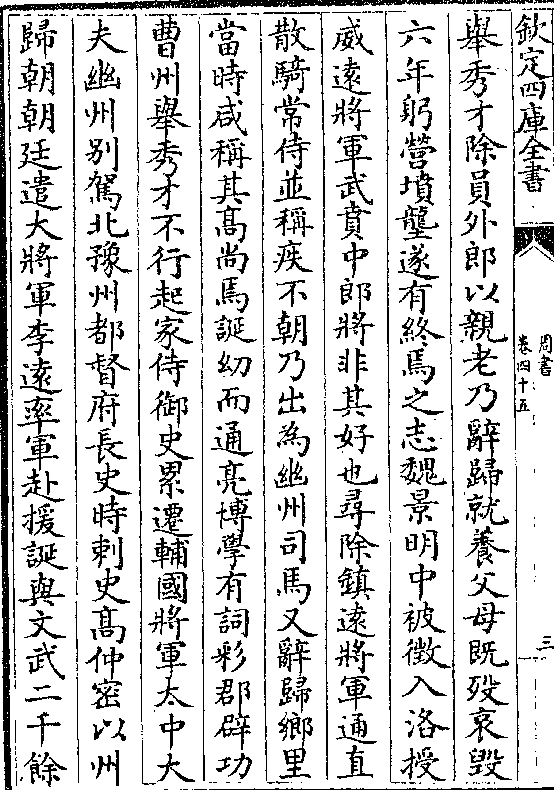 欽定四庫全書
周書
卷四十五
三
舉秀才除員外郎以親老乃辭歸就養父母既歿哀毀
六年躬營墳壟遂有終焉之志魏景明中被徵入洛授
威遠將軍武賁中郎將非其好也尋除鎮遠將軍通直
散騎常侍並稱疾不朝乃出為幽州司馬又辭歸鄉里
當時咸稱其髙尚焉誕幼而通亮博學有詞彩郡辟功
曹州舉秀才不行起家侍御史累遷輔國將軍太中大
夫幽州别駕北豫州都督府長史時刺史髙仲密以州
歸朝朝廷遣大將軍李遠率軍赴援誕與文武二千餘